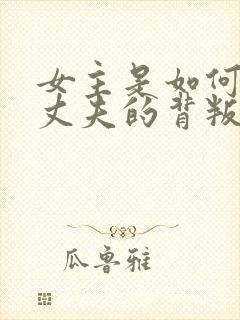 女主是如何
丈夫的背叛
瓜鲁雅